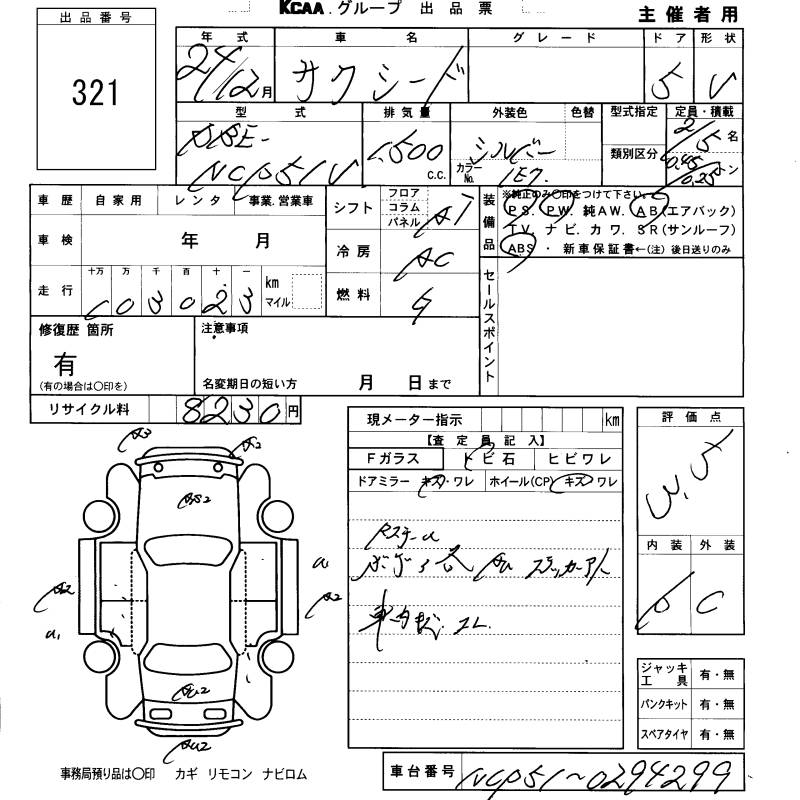 KCAA.グループ 出品票
主催者用
出品番号
321
年式 車名 グレード ドア 形状
24/12月 サクシード 5 V
型式 排気量 外装色 色替 型式指定 定員・積載
DBE-
NCP51V 1,500 c.c. シルバー カラーNo. 1E7. 類別区分 2/5名
0.45/0.25トン
車歴 自家用 レンタ 事業.営業車
シフト フロア コラム パネル AT
装備品 ※純正のみ〇印をつけて下さい。
PS. PW. 純AW. AB(エアバック)
TV. ナビ. カワ. SR(サンルーフ)
ABS・新車保証書←(注)後日送りのみ
車検 年 月
冷房 AC
走行 十万 万 千 百 十 一
103023 km マイル
燃料 G
セールスポイント
修復歴 箇所 注意事項
有
(有の場合は〇印を) 名変期日の短い方 月 日まで
リサイクル料 8230円
現メーター指示 km
【査定員記入】
Fガラス トビ石 ヒビワレ
ドアミラー キズ・ワレ ホイール(CP) キズ・ワレ
評価点
3.5
内装 外装
D C
A3
A2
A2
U1
A2
U1
AU2
車内
ジャッキ工具 有・無
パンクキット 有・無
スペアタイヤ 有・無
事務局預り品は〇印 カギ リモコン ナビロム
車台番号 NCP51~0294299